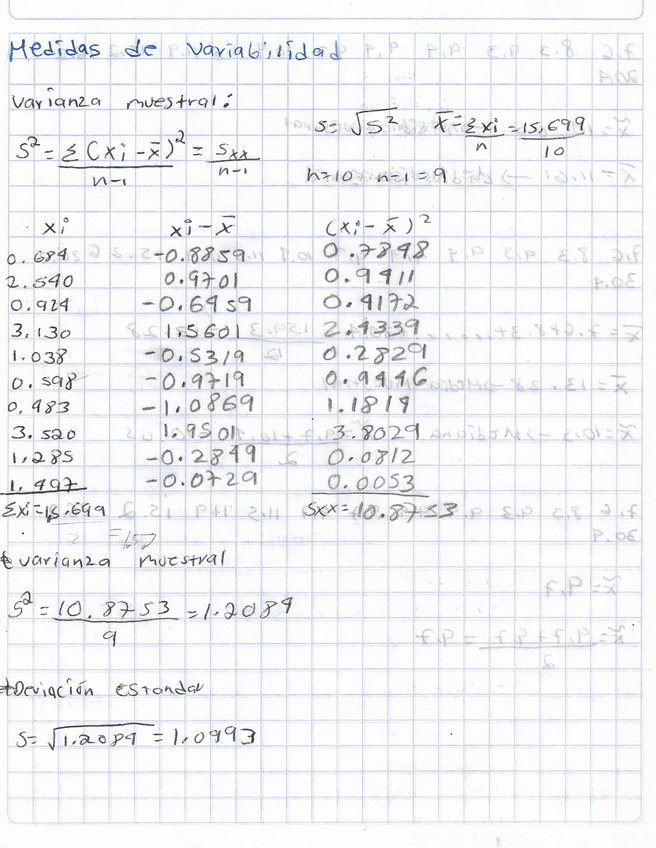 Medidas de variabilidad
varianza muestral:
S² = Σ(xi - x̄)² / n-1 = Sxx / n-1
S = √S² x̄ = Σxi / n = 15.699 / 10
n=10 n-1=9
xi xi - x̄ (xi - x̄)²
0.684 -0.8859 0.7848
2.540 0.9701 0.9411
0.924 -0.6459 0.4172
3.130 1.5601 2.4339
1.038 -0.5319 0.2829
0.598 -0.9719 0.9446
0.483 -1.0869 1.1819
3.520 1.9501 3.8029
1.285 -0.2849 0.0812
1.497 -0.0729 0.0053
Σxi = 15.699 Sxx = 10.8753
varianza muestral
S² = 10.8753 / 9 = 1.2084
Deviación estandar
S = √1.2084 = 1.0993